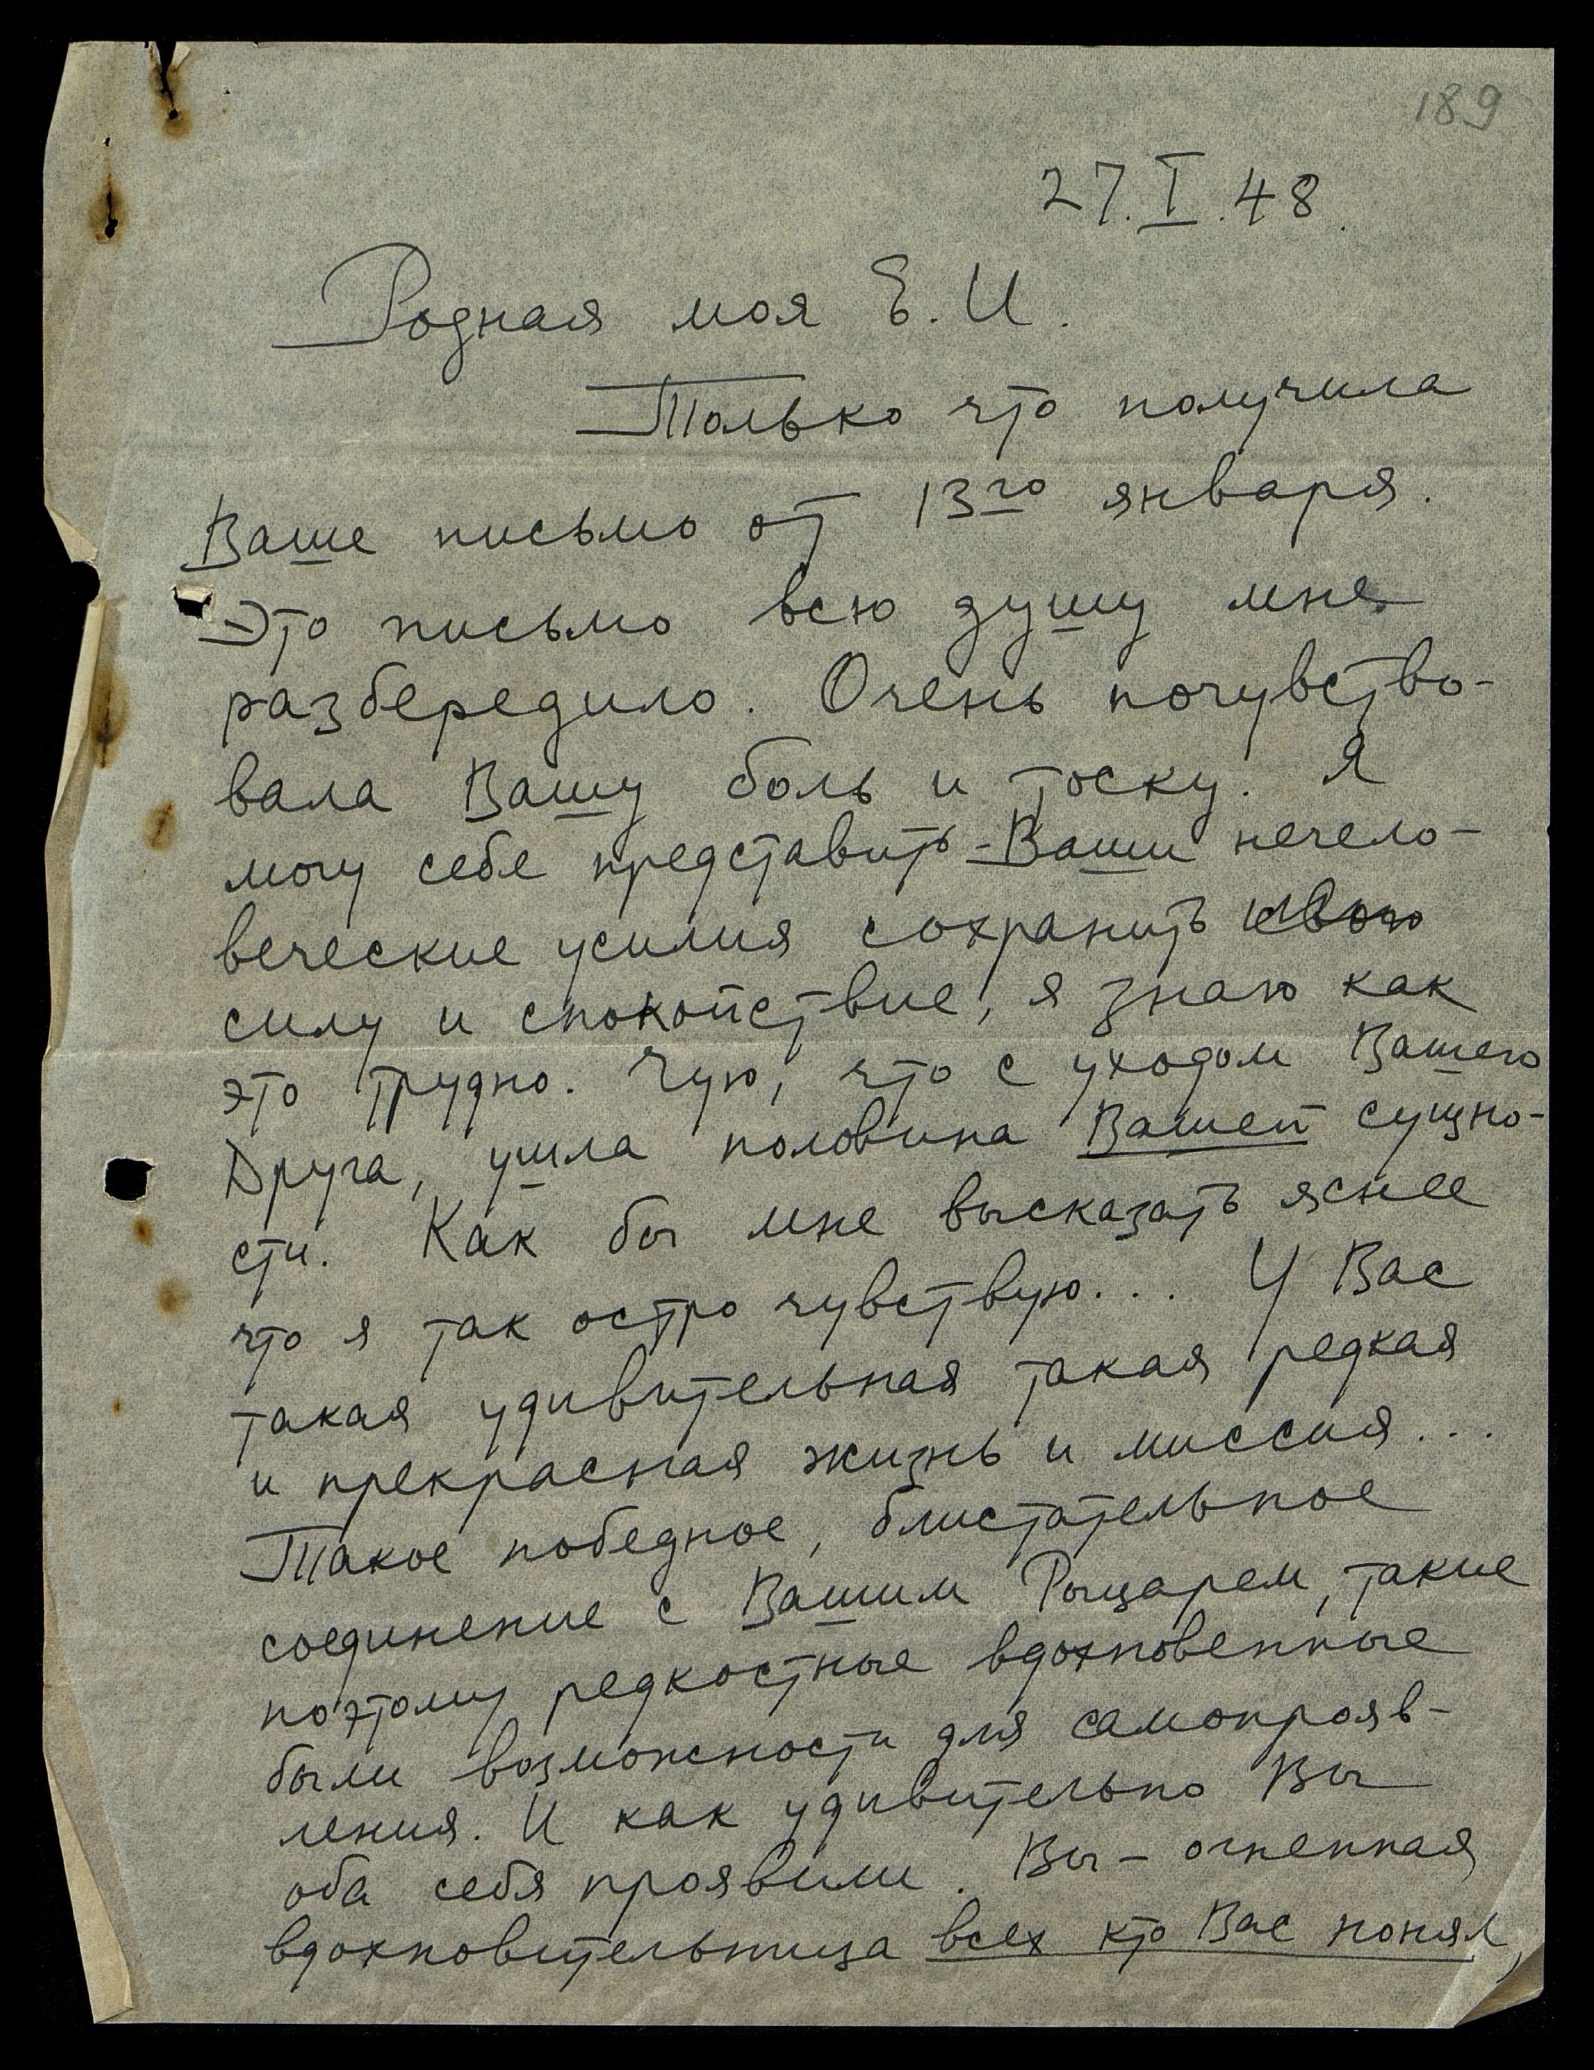 189
27.I.48.
Родная моя Е.И.
Только что получила
Ваше письмо от 13го января.
Это письмо всю душу мне
разбередило. Очень почувство-
вала Вашу боль и тоску. Я
могу себе представить - Ваши нечело-
веческие усилия сохранить
силу и спокойствие, я знаю как
это трудно. Чую, что с уходом Вашего
Друга, ушла половина Вашей сущно-
сти. Как бы мне высказать яснее
что я так остро чувствую... У Вас
такая удивительная такая редкая
и прекрасная жизнь и миссия...
Такое победное, блистательное
соединение с Вашим Рыцарем, такие
поэтому редкостные вдохновенные
были возможности для самопрояв-
ления. И как удивительно Вы
оба себя проявили. Вы - огненная
вдохновительница всех кто Вас понял,